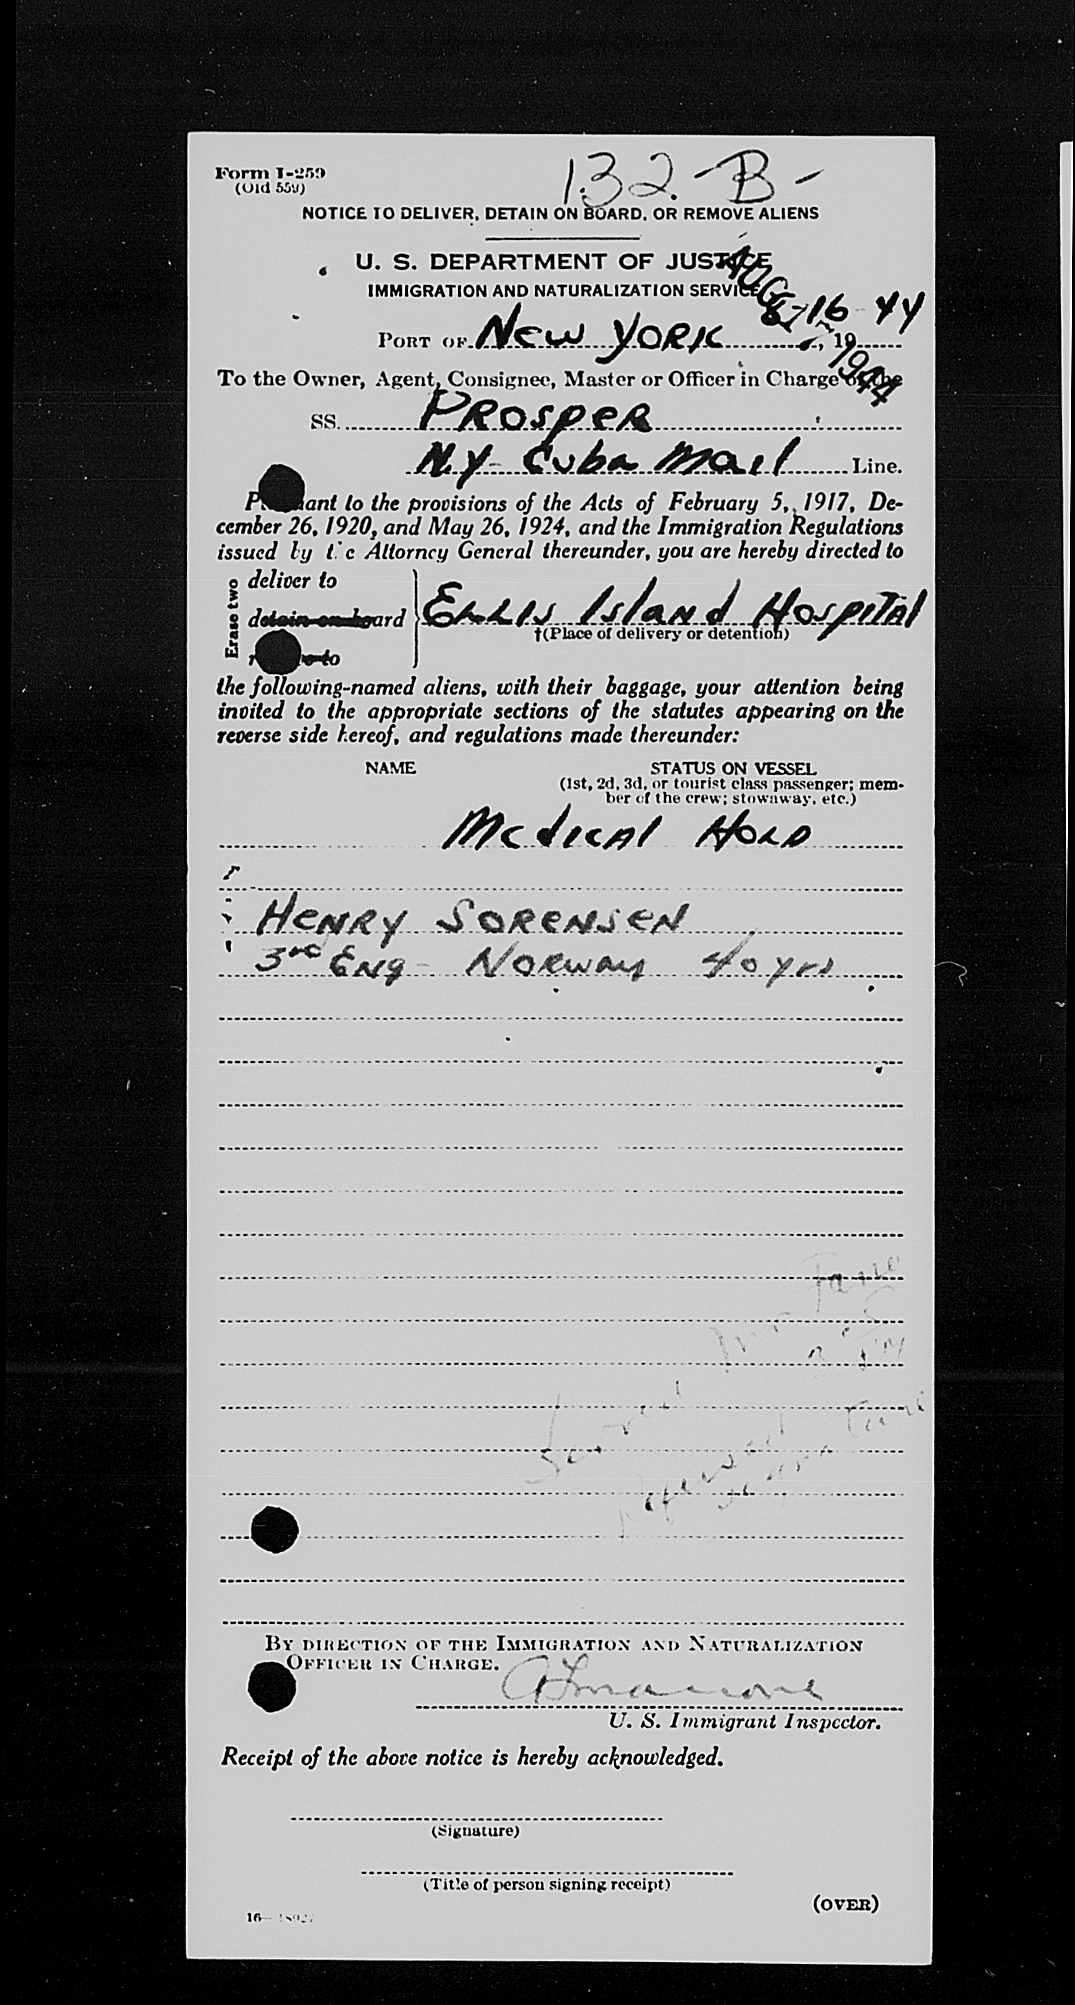 Form I-259
(Old 559)
132-B-
NOTICE TO DELIVER, DETAIN ON BOARD, OR REMOVE ALIENS
U. S. DEPARTMENT OF JUSTICE
IMMIGRATION AND NATURALIZATION SERVICE
AUG 17 1944
8-16-44
PORT OF New York, 19
To the Owner, Agent, Consignee, Master or Officer in Charge of the
SS. Prosper
N.Y. Cuba Mail Line.
Pursuant to the provisions of the Acts of February 5, 1917, De-
cember 26, 1920, and May 26, 1924, and the Immigration Regulations
issued by the Attorney General thereunder, you are hereby directed to
Erase two
deliver to
detain on board
Ellis Island Hospital
†(Place of delivery or detention)
to
the following-named aliens, with their baggage, your attention being
invited to the appropriate sections of the statutes appearing on the
reverse side hereof, and regulations made thereunder:
NAME STATUS ON VESSEL
(1st, 2d, 3d, or tourist class passenger; mem-
ber of the crew; stowaway, etc.)
Medical Hold
Henry Sorensen
3rd Eng - Norway 40 yrs
Refused
BY DIRECTION OF THE IMMIGRATION AND NATURALIZATION
OFFICER IN CHARGE.
U. S. Immigrant Inspector.
Receipt of the above notice is hereby acknowledged.
(Signature)
(Title of person signing receipt)
(OVER)
16—